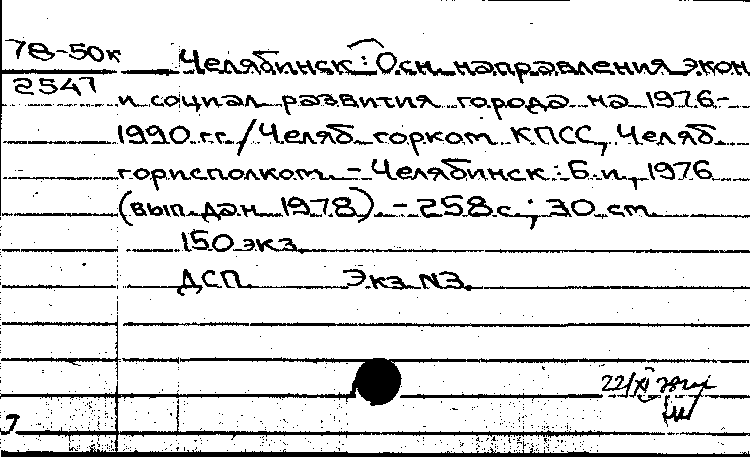 78-50к
2547
Челябинск: Осн. направления экон.
и социал. развития города на 1976-
1990 гг. / Челяб. горком КПСС, Челяб.
горисполком. - Челябинск: Б. и., 1976
(вып. дан. 1978). - 258 с.; 30 см.
150 экз.
ДСП. Экз. №3.
22/XI